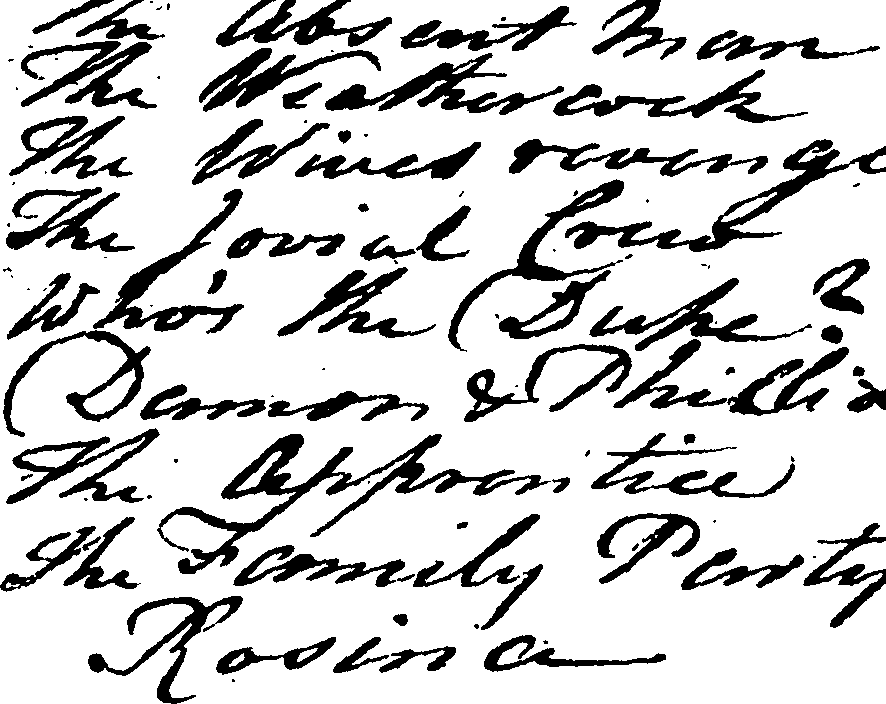 The Absent Man
The Weathercock
The Wives revenge
The Jovial Crew
Who's the Dupe?
Damon & Phillida
The Apprentice
The Family Party
Rosina